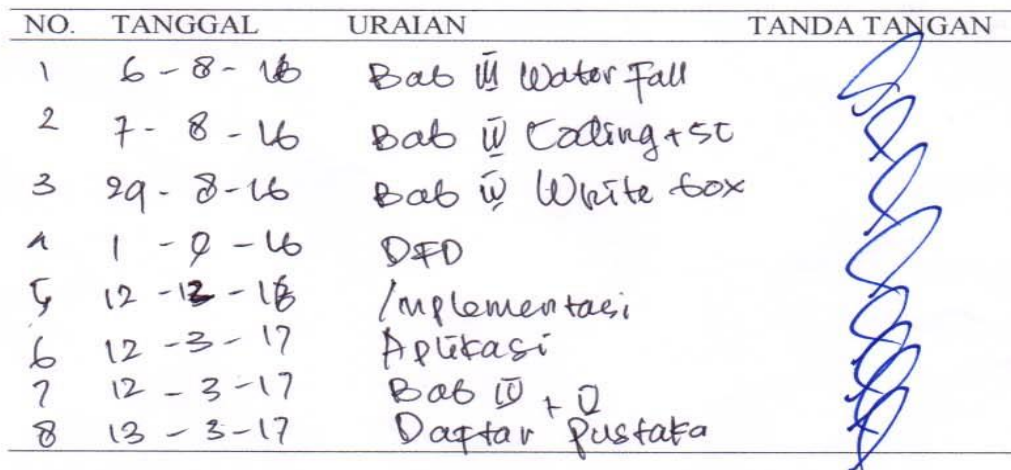 NO. TANGGAL URAIAN TANDA TANGAN
1 6 - 8 - 16 Bab III Water Fall
2 7 - 8 - 16 Bab IV Coding + SC
3 29 - 8 - 16 Bab IV White box
4 1 - 9 - 16 DFD
5 12 - 12 - 16 Implementasi
6 12 - 3 - 17 Aplikasi
7 12 - 3 - 17 Bab IV + V
8 13 - 3 - 17 Daftar Pustaka